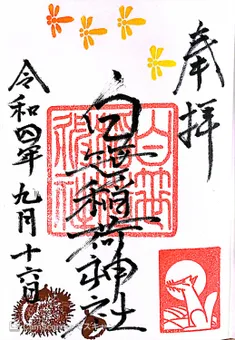 奉拝
白笹稲荷神社
令和四年九月十六日